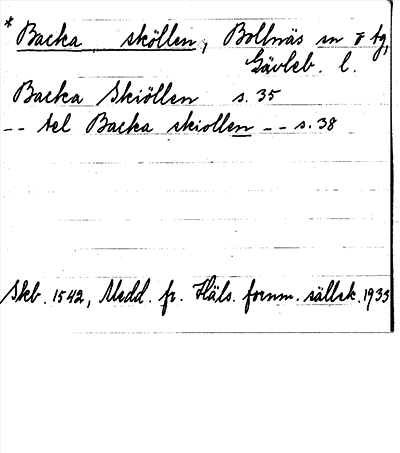 * Backa sköllen, Bollnäs sn o tg,
Gävleb. l.
Backa Skiöllen s. 35
-- tel Backa skiollen -- s. 38
Skb. 1542, Medd. fr. Häls. fornm. sällsk. 1933